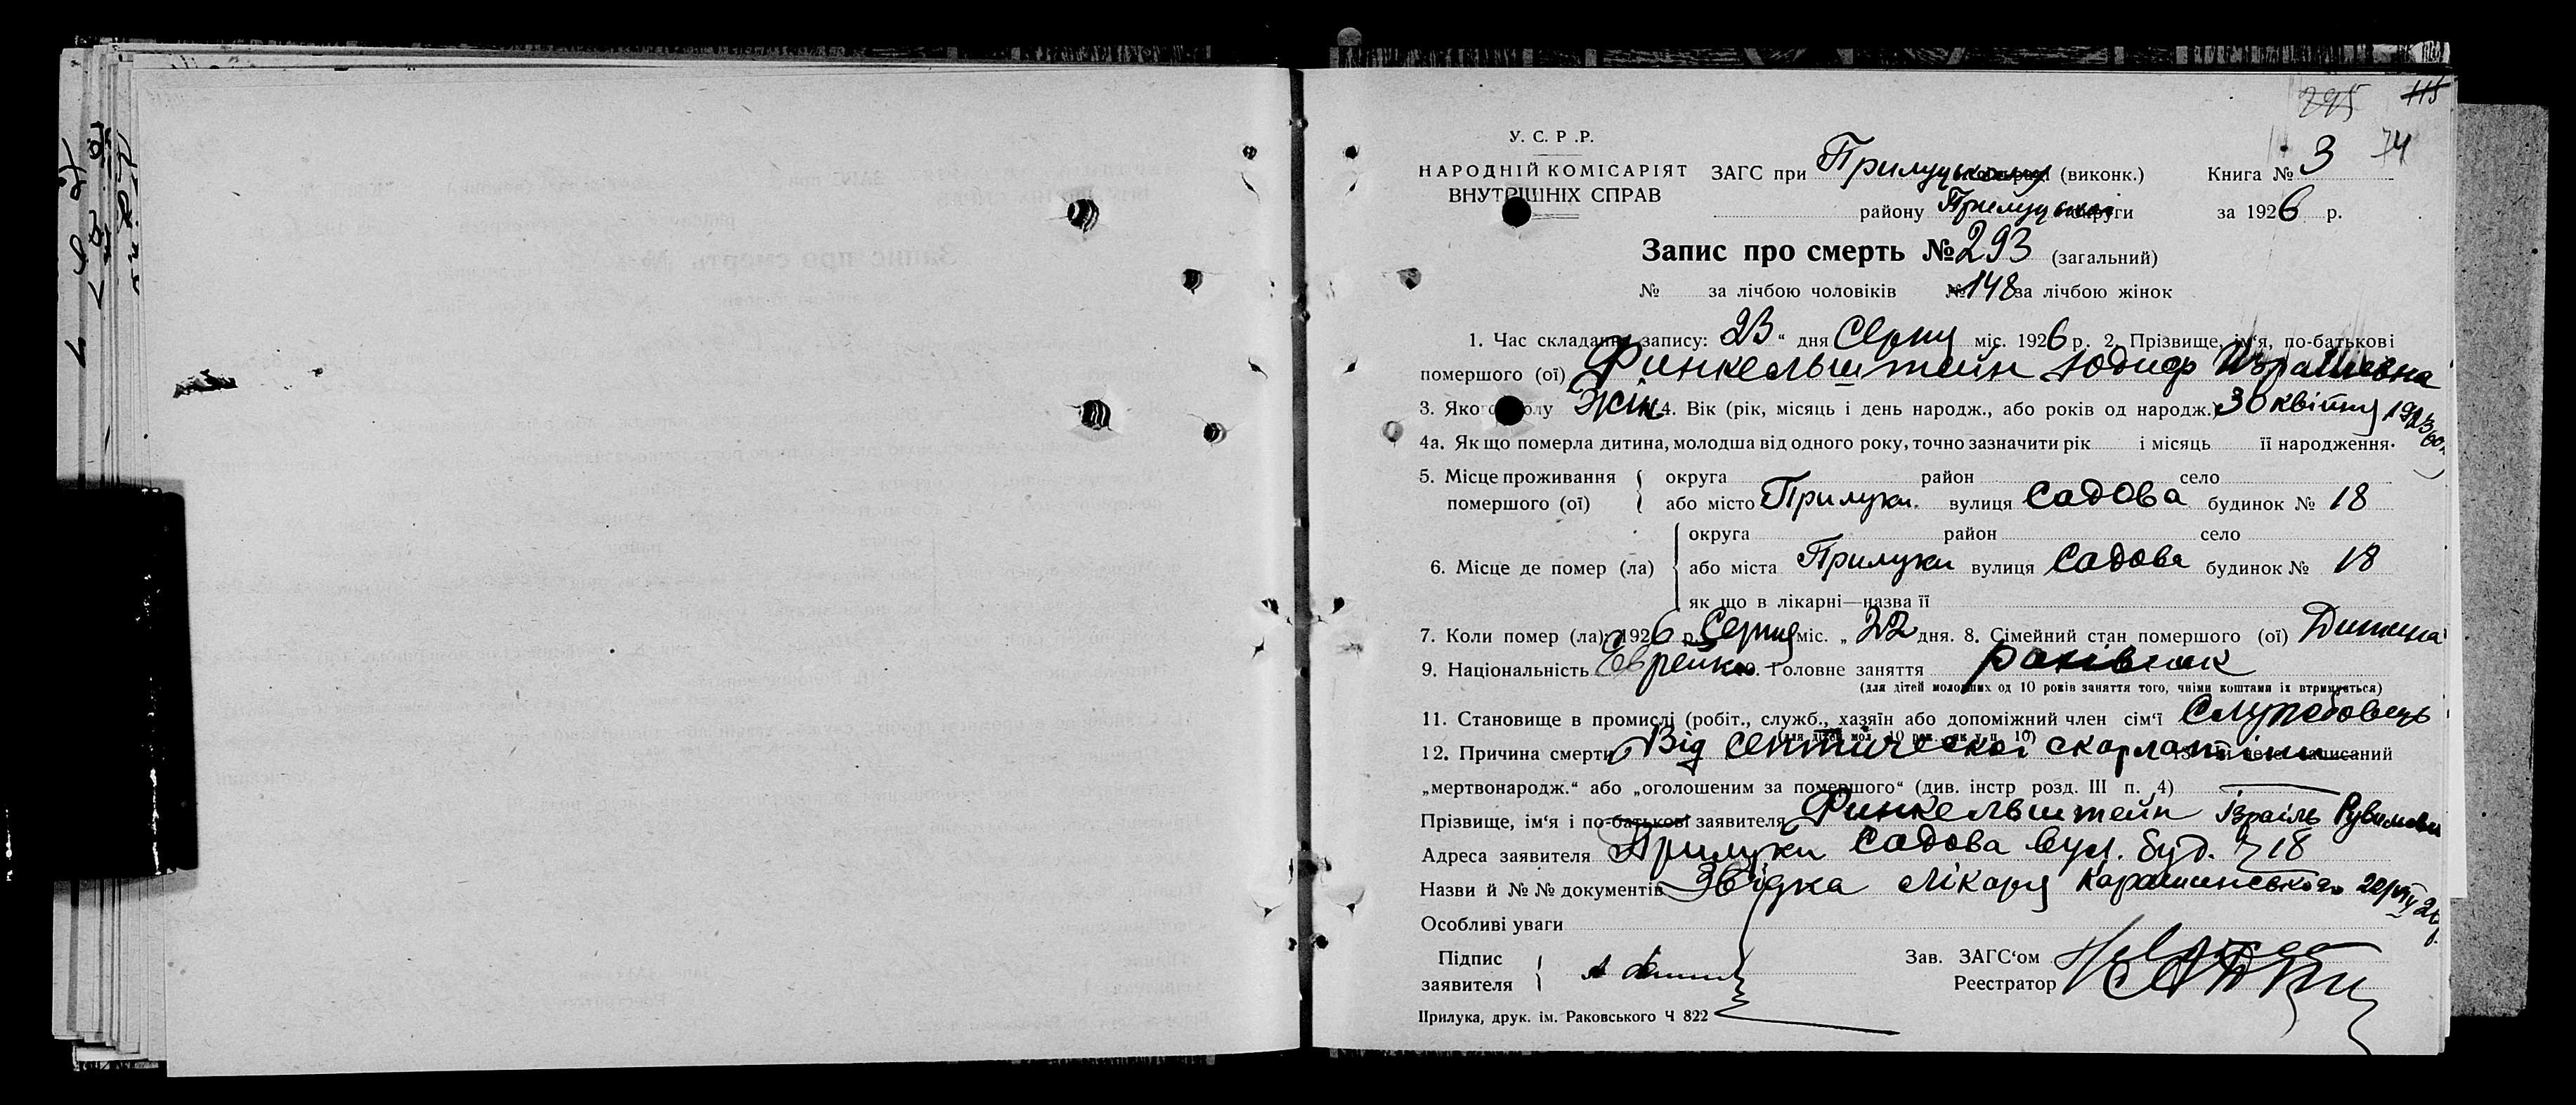 295 115
У. С. Р. Р.
НАРОДНІЙ КОМІСАРІЯТ ЗАГС при Прилуцькому (виконк.) Книга № 3 74
ВНУТРІШНІХ СПРАВ району Прилуцької округи за 1926 р.
Запис про смерть № 293 (загальний)
№ за лічбою чоловіків № 148 за лічбою жінок
1. Час складання запису: 23 " дня Серпня міс. 1926 р. 2. Прізвище, ім'я, по-батькові
помершого (ої) Финкельштейн Юдиф Израилевна
3. Якого полу Жін 4. Вік (рік, місяць і день народж., або років од народж.) 30 квітня 1923
4а. Як що померла дитина, молодша від одного року, точно зазначити рік і місяць її народження.
5. Місце проживання округа район село
помершого (ої) або місто Прилуки. вулиця Садова будинок № 18
округа район село
6. Місце де помер (ла) або міста Прилуки вулиця Садова будинок № 18
як що в лікарні—назва її
7. Коли помер (ла): 1926 р. Серпня міс. „ 22 дня. 8. Сімейний стан помершого (ої) Дитина
9. Національність Єврейка 10. Головне заняття
(для дітей молодших од 10 років заняття того, чиїми коштами їх втримується)
11. Становище в промислі (робіт., служб., хазяїн або допоміжний член сім'ї Службовець
(для дітей мол. 10 рок. як у п. 10)
12. Причина смерти Від септической скарлатіни 13. записаний
„мертвонародж." або „оголошеним за помершого" (див. інстр розд. III п. 4)
Прізвище, ім'я і по-батькові заявителя Финкельштейн Ізраїль Рувимович
Адреса заявителя Прилуки Садова вул. буд. № 18
Назви й № № документів Звідка лікаря Карашинського 22/VIII 26
Особливі уваги
Підпис Зав. ЗАГС'ом
заявителя Реестратор
Прилука, друк. ім. Раковського Ч 822